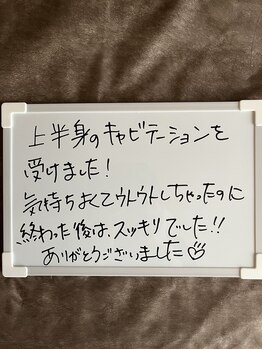 上半身のキャビテーションを
受けました!
気持ちよくてウトウトしちゃったのに
終わった後は、スッキリでした!!
ありがとうございました♡